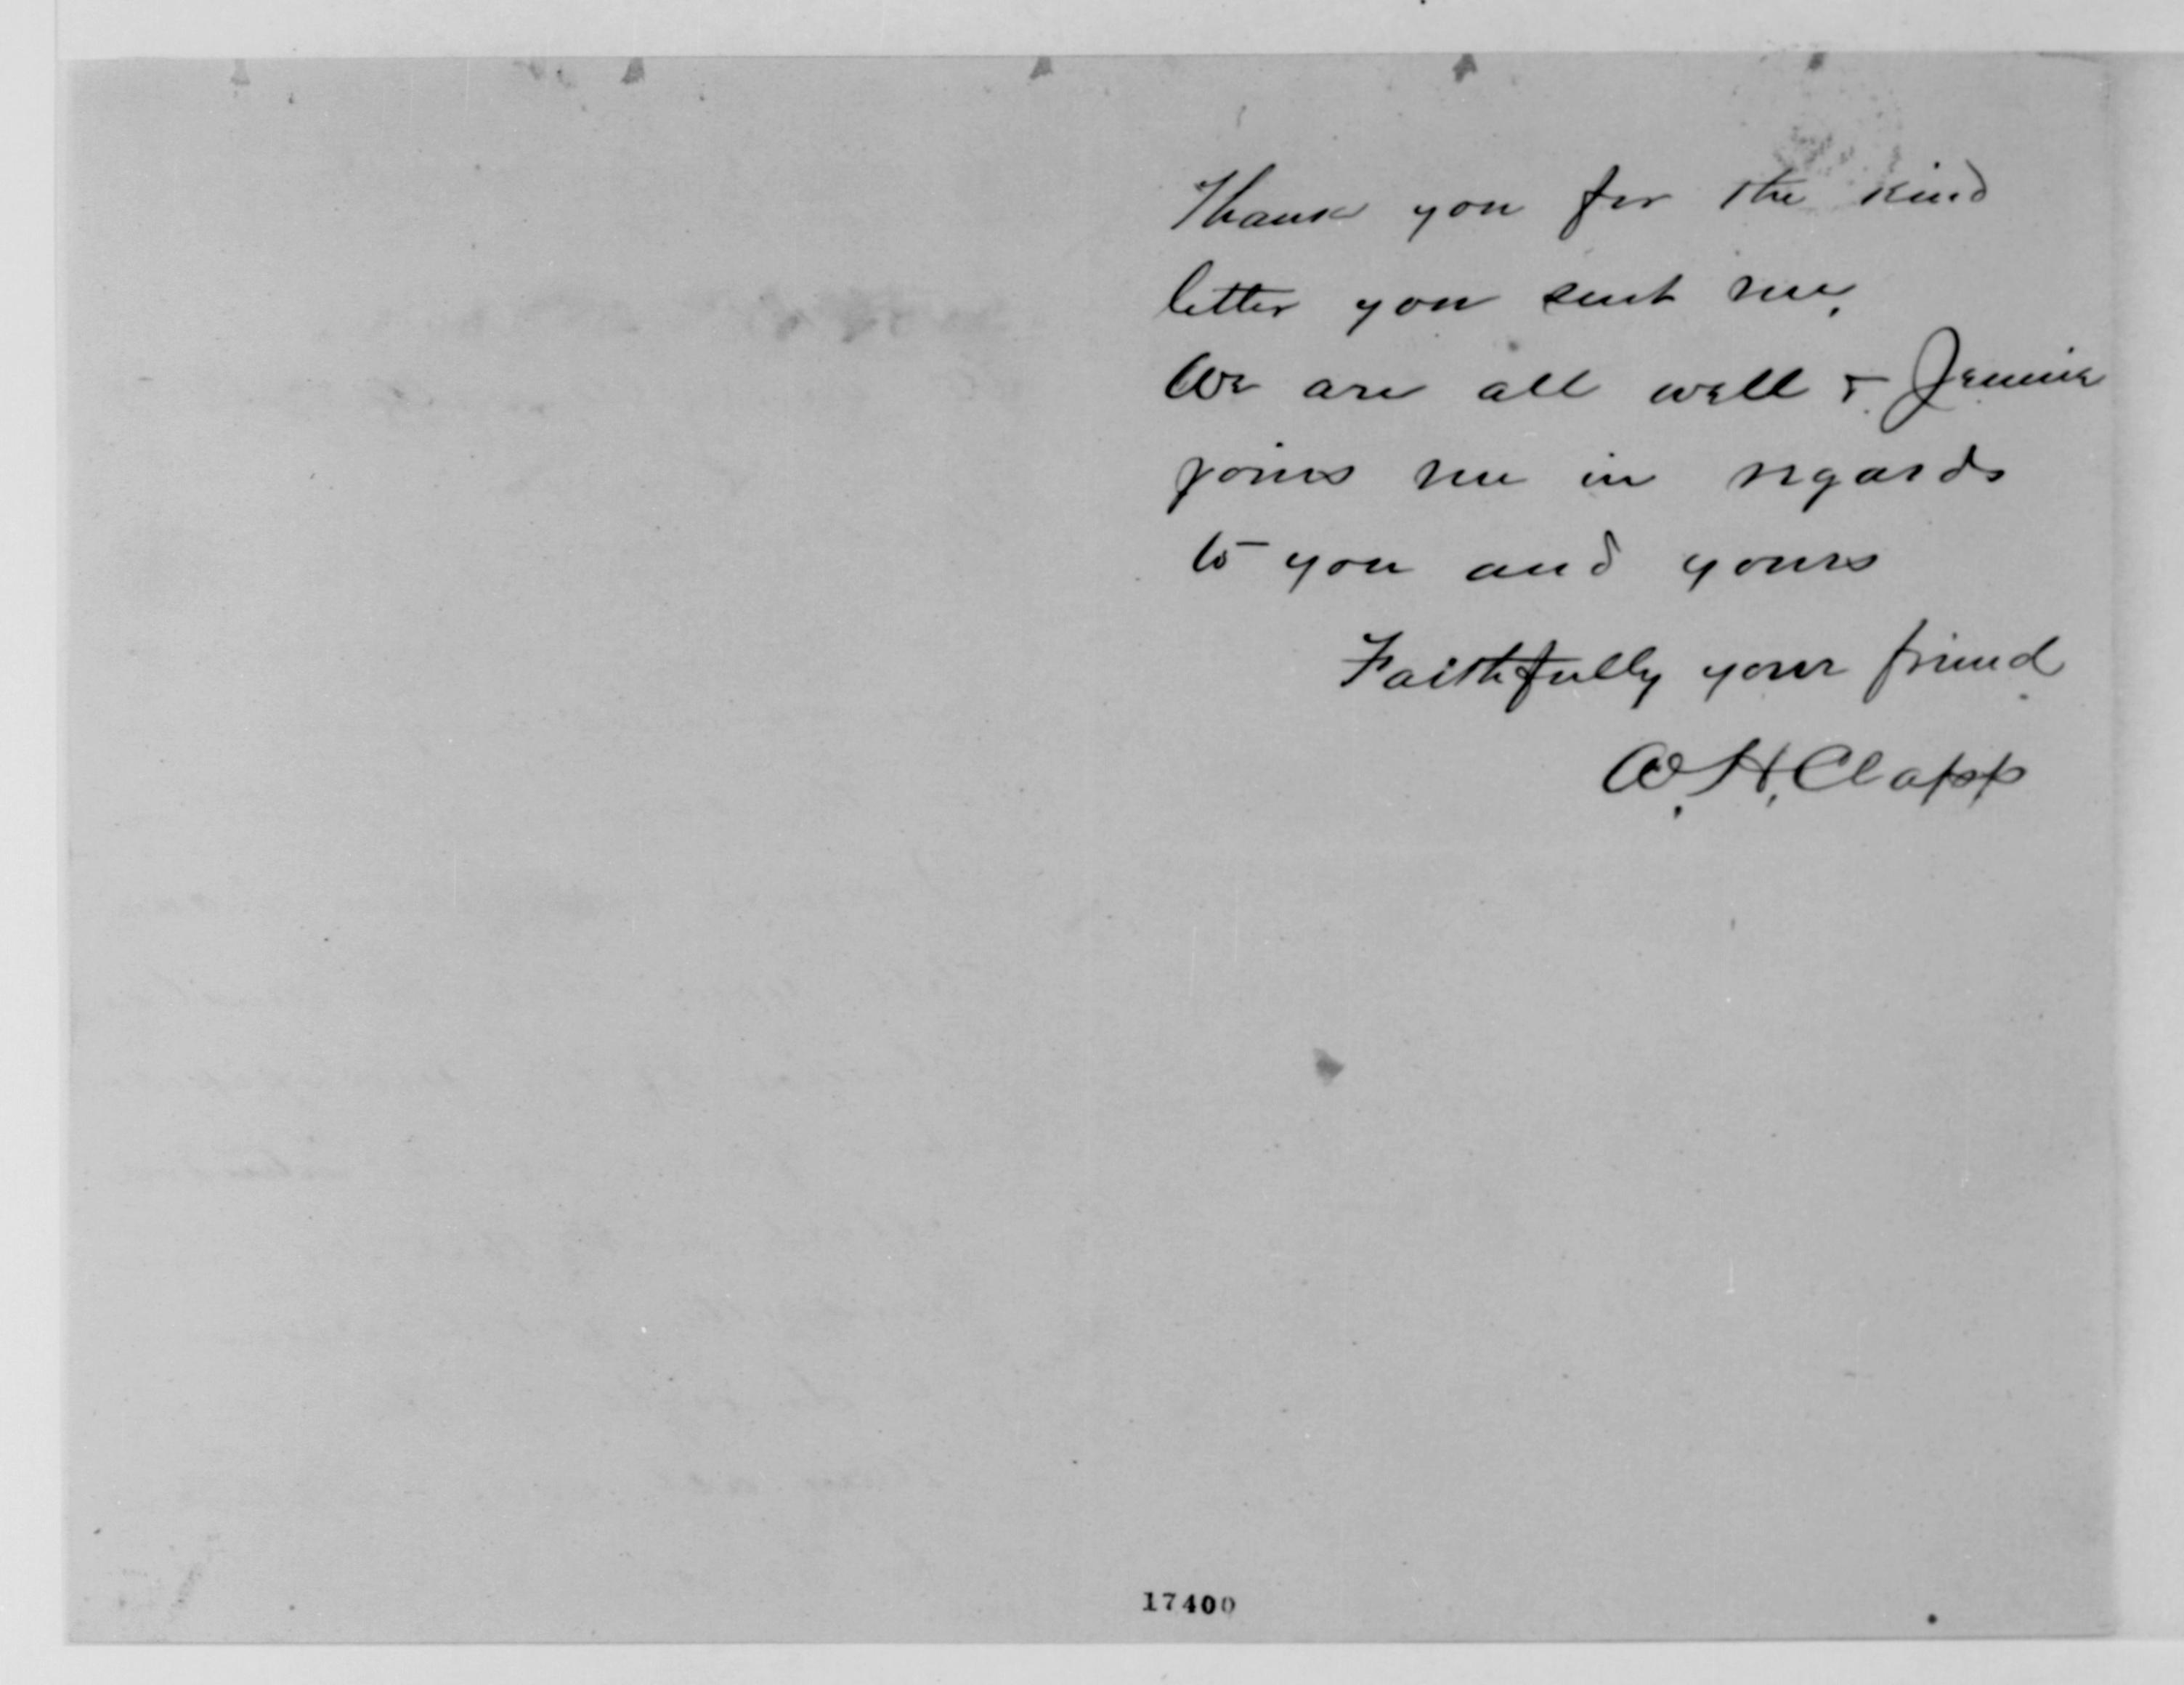 Thank you for the kind
letter you sent me.
We are all well & Jennie
joins me in regards
to you and yours
Faithfully your friend
W. H. Clapp
17400